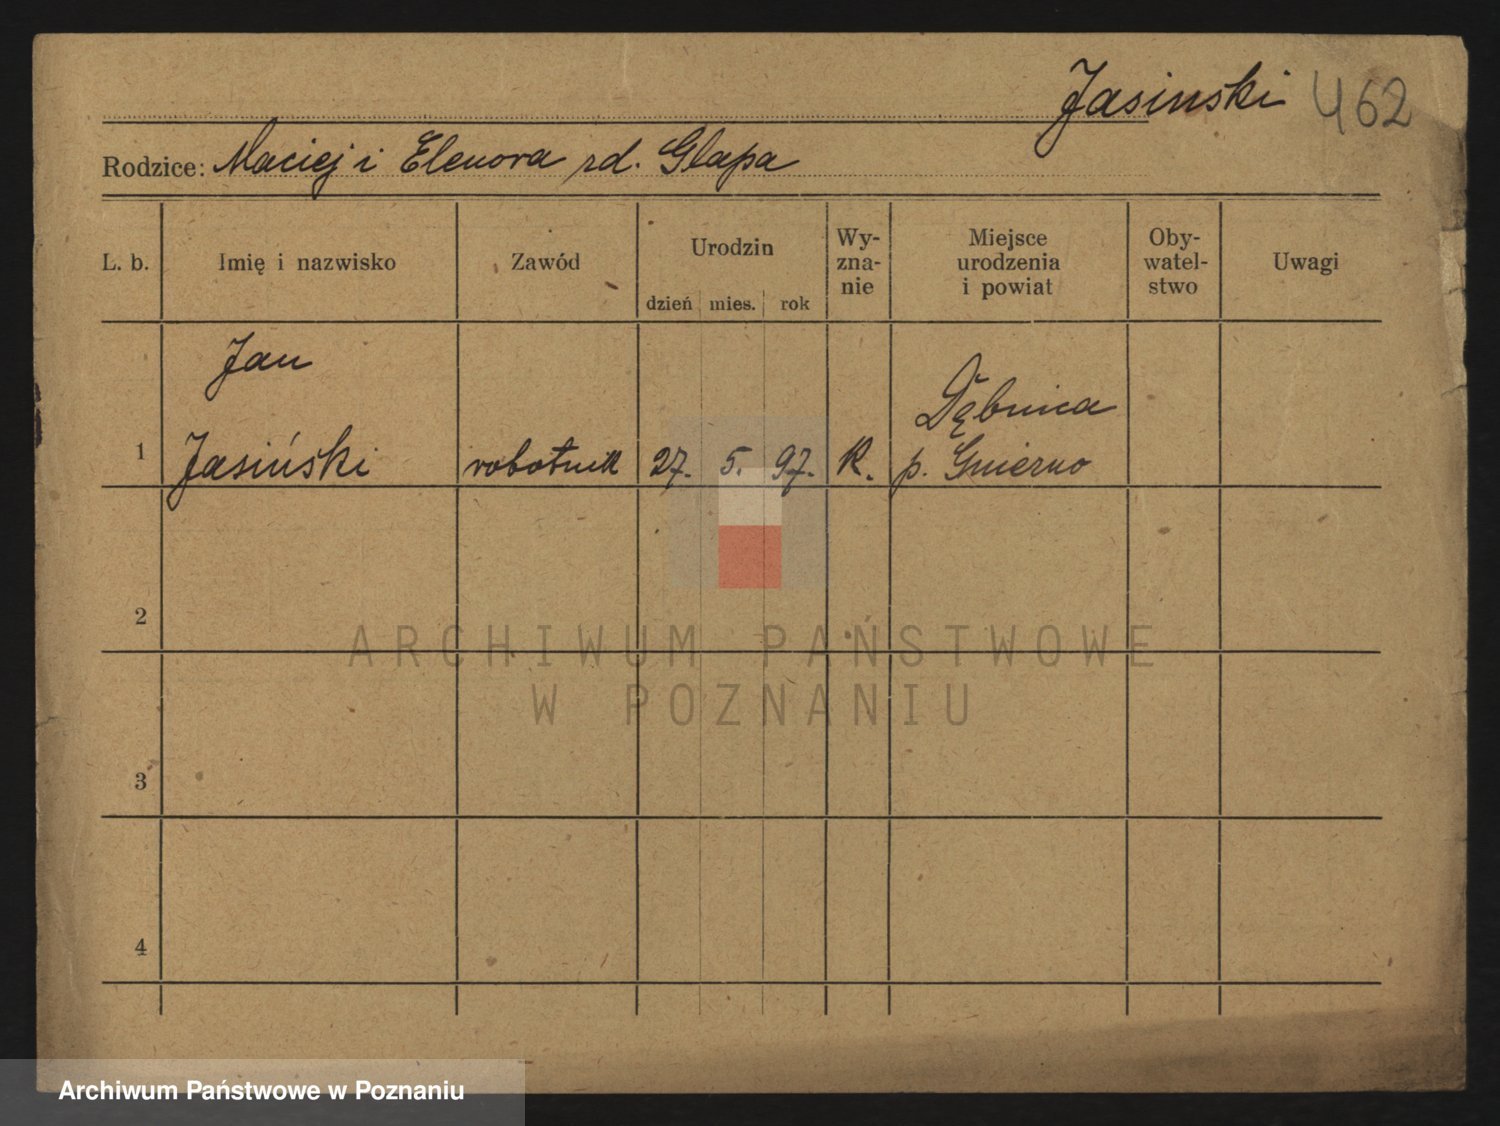 Jasinski 462
Rodzice: Maciej i Elenora rd. Glapa
L. b. Imię i nazwisko Zawód Urodzin dzień mies. rok Wy-zna-nie Miejsce urodzenia i powiat Oby-watel-stwo Uwagi
Jan
Dębnica
1 Jasiński robotnik 27. 5. 97. R. p. Gnierno
2
ARCHIWUM PAŃSTWOWE
W POZNANIU
3
4
Archiwum Państwowe w Poznaniu